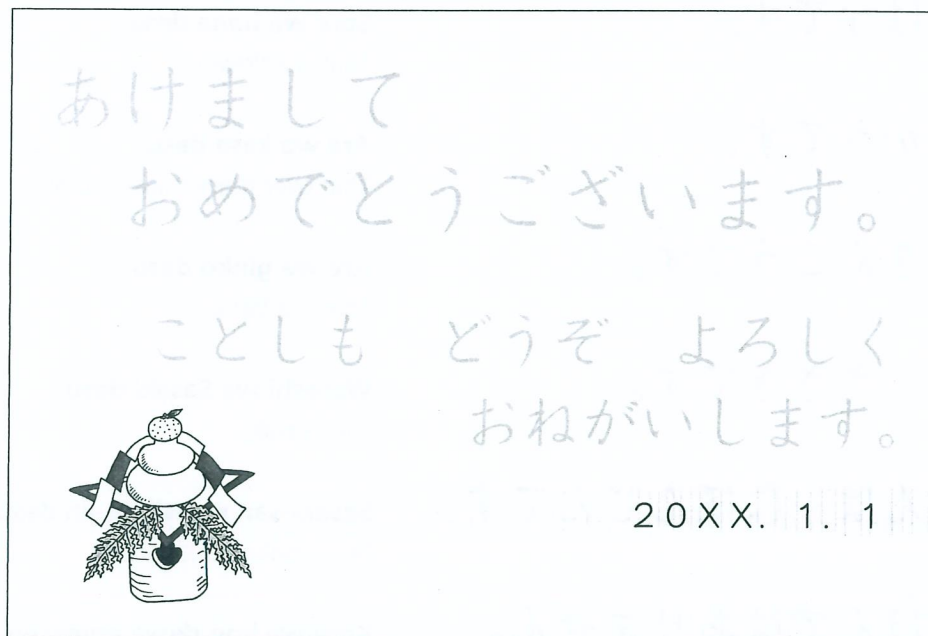 あけまして
おめでとうございます。
ことしも どうぞ よろしく
おねがいします。
20XX. 1. 1